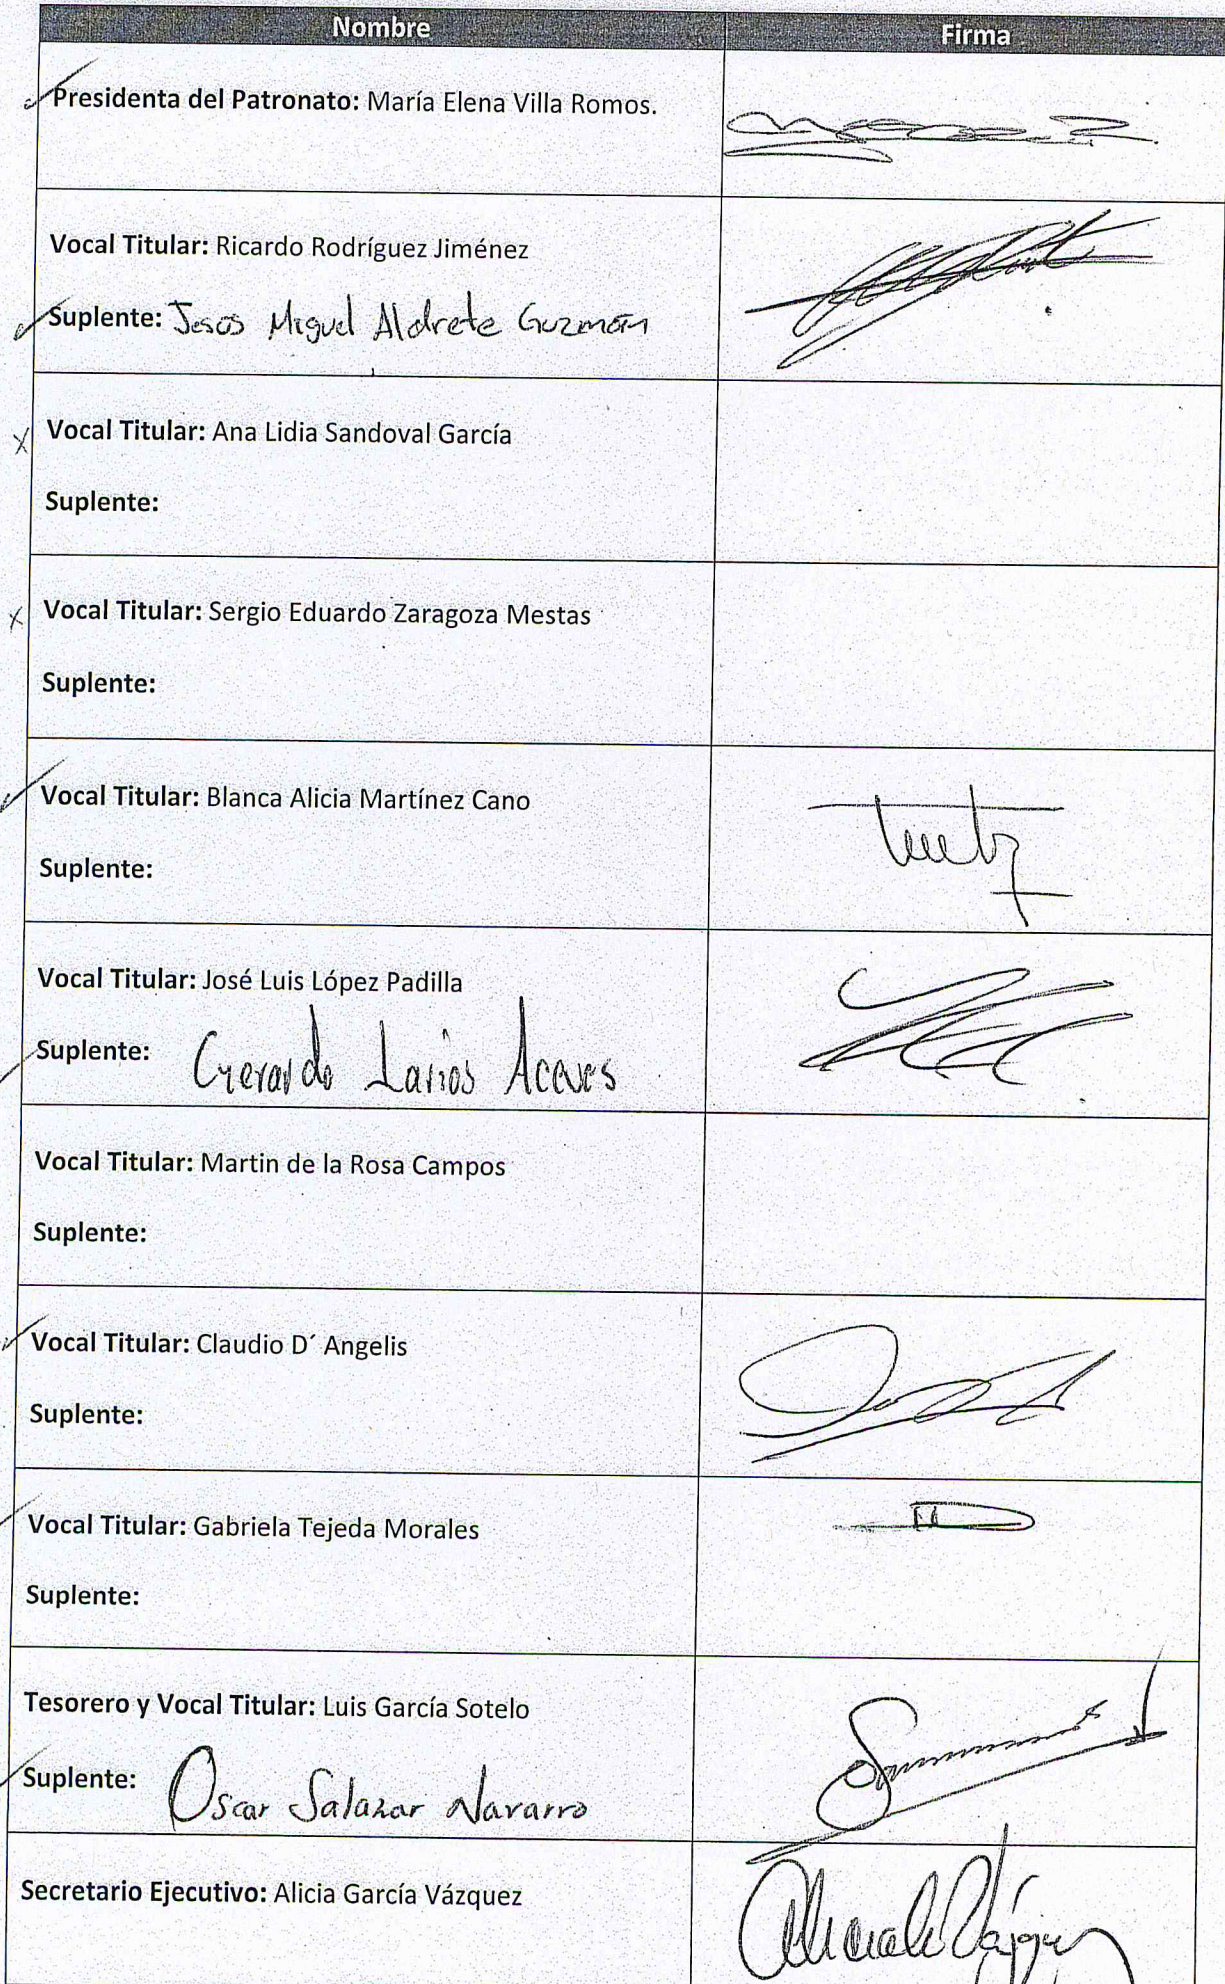 Nombre Firma
Presidenta del Patronato: María Elena Villa Romos.
Vocal Titular: Ricardo Rodríguez Jiménez
Suplente: Jesús Miguel Aldrete Guzmán
X Vocal Titular: Ana Lidia Sandoval García
Suplente:
X Vocal Titular: Sergio Eduardo Zaragoza Mestas
Suplente:
Vocal Titular: Blanca Alicia Martínez Cano
Suplente:
Vocal Titular: José Luis López Padilla
Suplente: Gerardo Larios Aceves
Vocal Titular: Martin de la Rosa Campos
Suplente:
Vocal Titular: Claudio D´ Angelis
Suplente:
Vocal Titular: Gabriela Tejeda Morales
Suplente:
Tesorero y Vocal Titular: Luis García Sotelo
Suplente: Oscar Salazar Navarro
Secretario Ejecutivo: Alicia García Vázquez